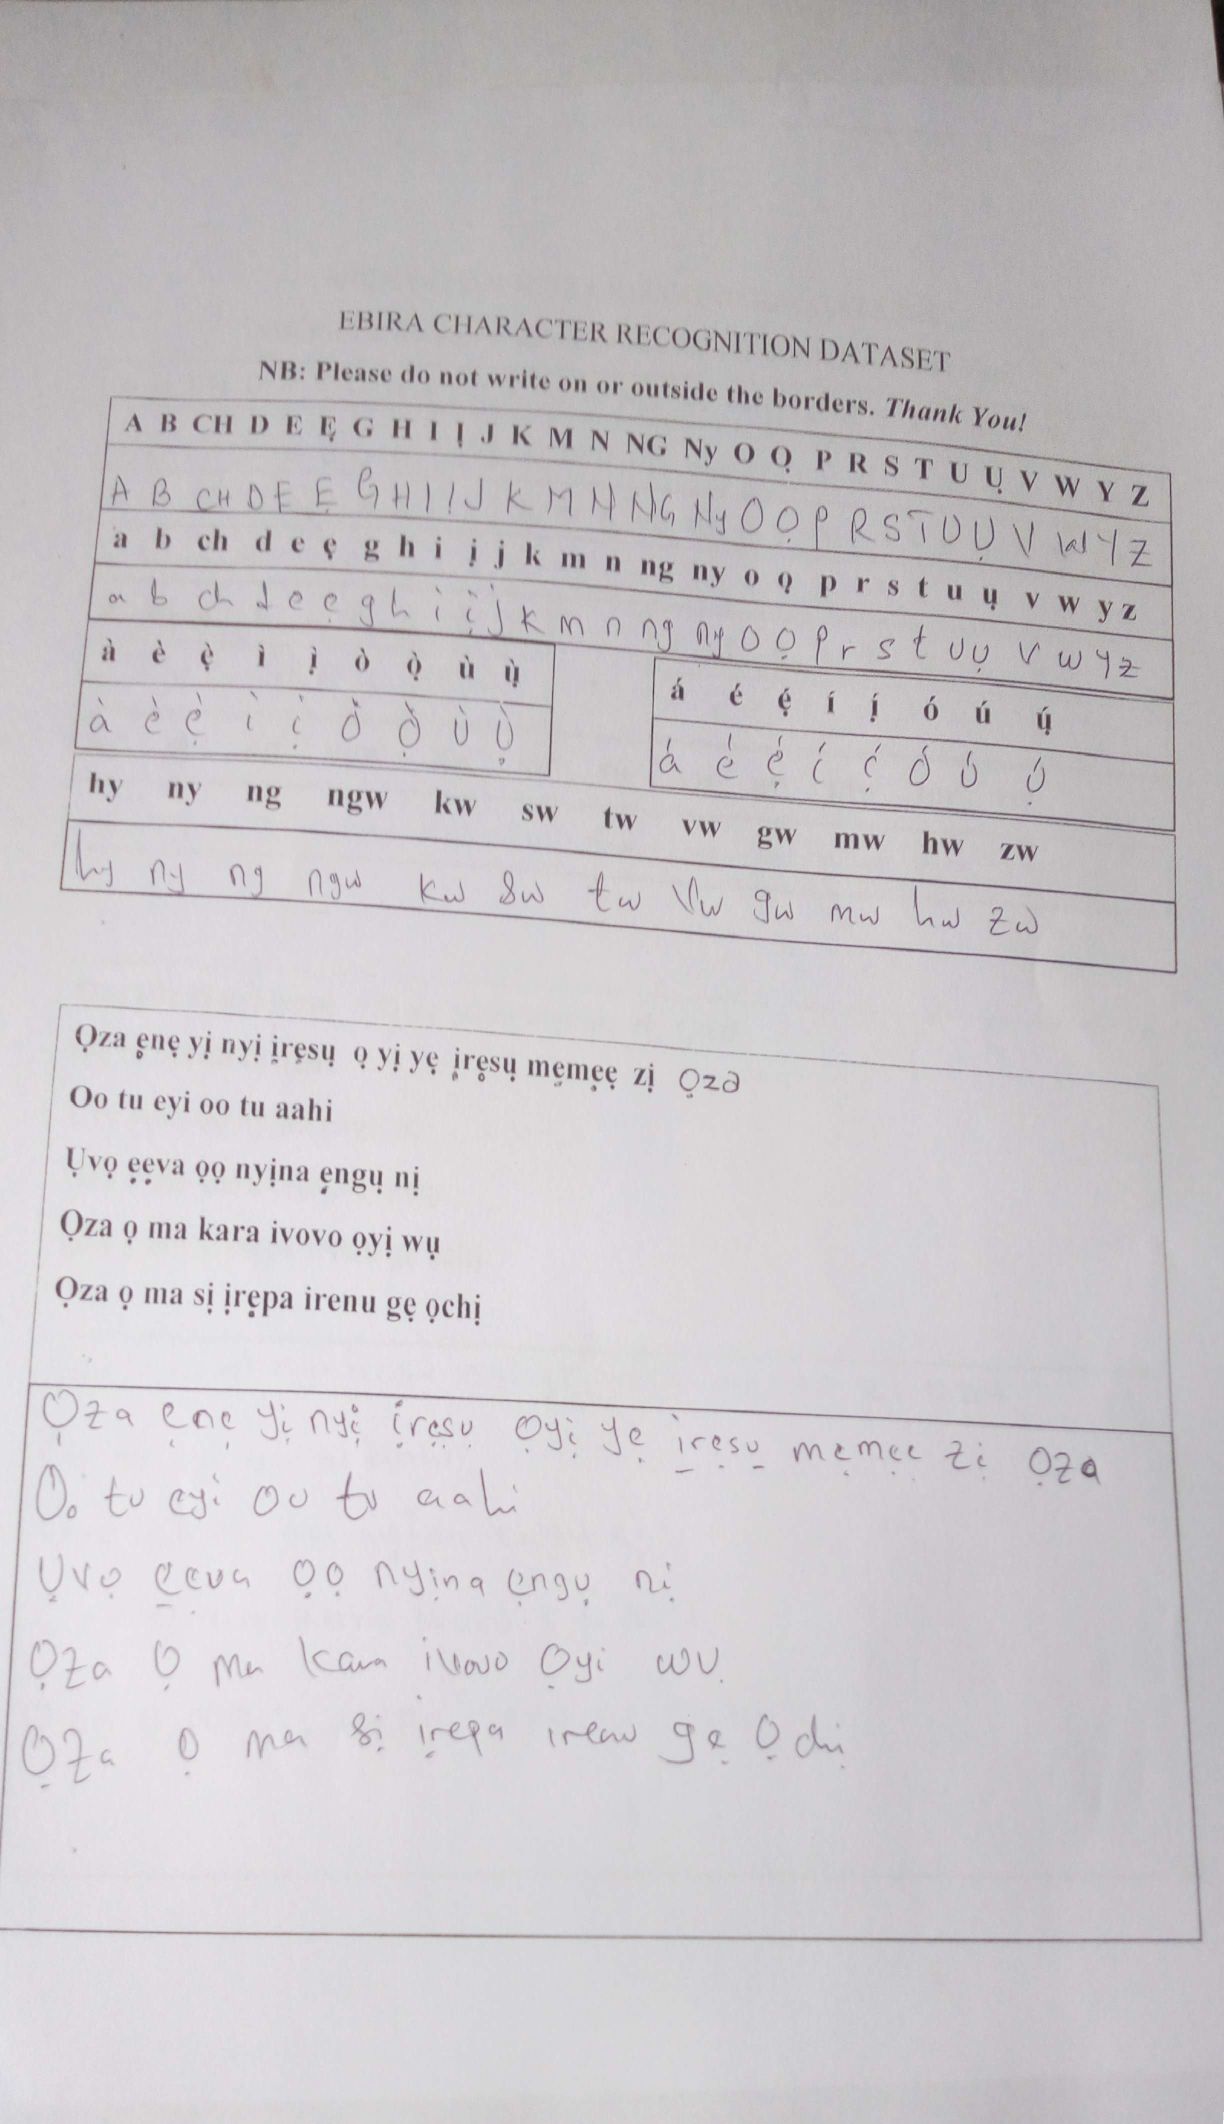 EBIRA CHARACTER RECOGNITION DATASET
NB: Please do not write on or outside the borders. Thank You!
A B CH D E Ẹ G H I Ị J K M N NG Ny O Ọ P R S T U Ụ V W Y Z
A B CH D E Ẹ G H I I J K M N NG Ny O Ọ P R S T U Ụ V W Y Z
a b ch d e ẹ g h i ị j k m n ng ny o ọ p r s t u ụ v w y z
a b ch d e ẹ g h i ị j k m n ng ny o ọ p r s t u ụ v w y z
à è ẹ̀ ì ị̀ ò ọ̀ ù ụ̀
à è ẹ̀ ì ị̀ ò ọ̀ ù ụ̀
á é ẹ́ í ị́ ó ú ụ́
á é ẹ́ í ị́ ó ú ụ́
hy ny ng ngw kw sw tw vw gw mw hw zw
hy ny ng ngw kw sw tw vw gw mw hw zw
Ọza ẹnẹ yị nyị ịrẹsụ ọ yị yẹ ịrẹsụ mẹmẹẹ zị ọza
Oo tu eyi oo tu aahi
Ụvọ ẹẹva ọọ nyịna ẹngụ nị
Ọza ọ ma kara ivovo ọyị wụ
Ọza ọ ma sị ịrẹpa irenu gẹ ọchị
Ọza ẹnẹ yị nyị ịrẹsụ ọyị yẹ ịrẹsụ mẹmẹe zị ọza
Oo tu eyi oo tu aahi
Ụvọ ẹẹva ọọ nyịna ẹngụ nị
Ọza ọ ma kara ivovo ọyi wụ
Ọza ọ ma sị ịrẹpa irenu gẹ ọchị